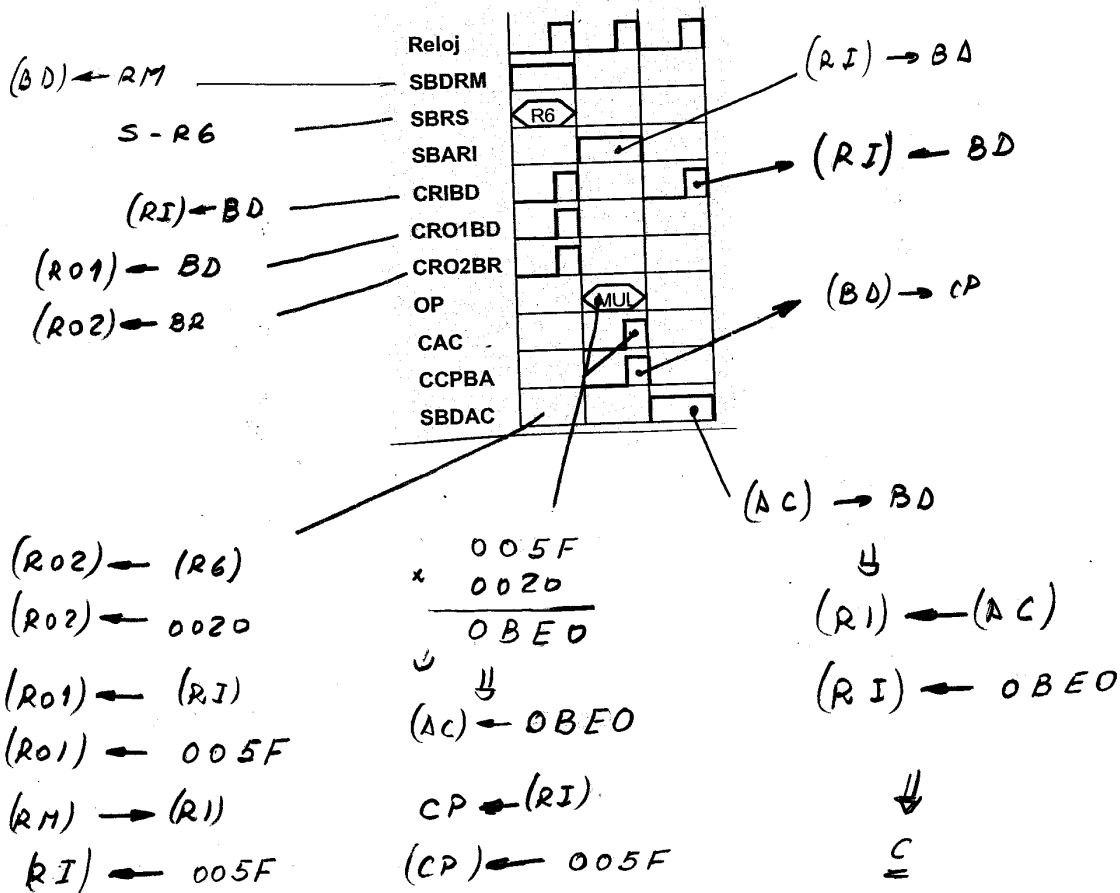 Reloj
SBDRM
SBRS
SBARI
CRIBD
CRO1BD
CRO2BR
OP
CAC
CCPBA
SBDAC
R6
MUL
(BD) ← RM
S - R6
(RI) ← BD
(RO1) ← BD
(RO2) ← BR
(RI) → BD
(RI) ← BD
(BD) → CP
(AC) → BD
⇓
(RI) ← (AC)
(RI) ← 0BE0
⇓
C
(RO2) ← (R6)
(RO2) ← 0020
(RO1) ← (RI)
(RO1) ← 005F
(RM) → (RI)
(RI) ← 005F
005F
x 0020
0BE0
⇓
(AC) ← 0BE0
CP ← (RI)
(CP) ← 005F